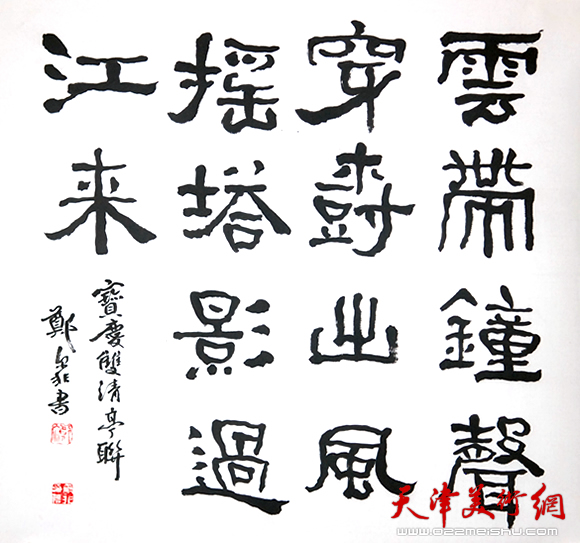 雲帶鐘聲
穿樹出風
搖塔影過
江来
寶慶雙清亭聯
鄭書
天津美術網
www.022meishu.com